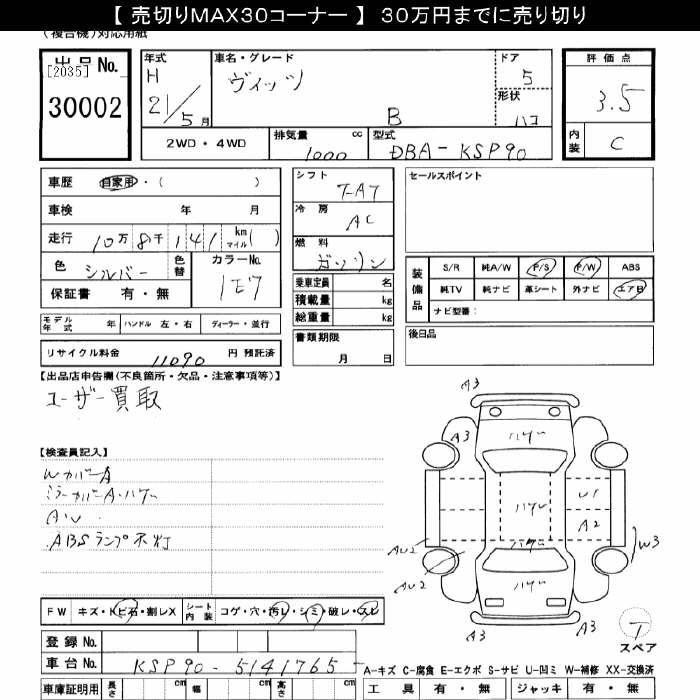 【 売切りMAX30コーナー 】 30万円までに売り切り
(複合機)対応用紙
出品No. [2035] 30002
年式 H 21/5月
車名・グレード ヴィッツ B
ドア 5
形状 ハコ
評価点 3.5
内装 C
2WD・4WD
排気量 1000 cc
型式 DBA-KSP90
車歴 自家用・( )
車検 年 月
走行 10万8千141 km マイル( )
色 シルバー 色替 カラーNo. 1E7
保証書 有・無
シフト FAT
冷房 AC
燃料 ガソリン
乗車定員 名
積載量 kg
総重量 kg
セールスポイント
装備品 S/R 純A/W P/S P/W ABS
純TV 純ナビ 革シート 外ナビ エアB
ナビ型番:
モデル年式 年 ハンドル 左・右 ディーラー・並行
リサイクル料金 11090 円 預託済
書類期限 月 日
後日品
【出品店申告欄(不良箇所・欠品・注意事項等)】
ユーザー買取
【検査員記入】
WカバーA
ミラーカバーA・ハゲ
A・U
ABSランプ不灯
A3
A3 ハゲ A3
ハゲ U1
A2
ハゲ
AU2 W3
AU2 ハゲ
A3 A3
T
スペア
FW キズ・トビ石・割レX シート内装 コゲ・穴・汚レ・シミ・破レ・スレ
登録No.
車台No. KSP90-5141765
A-キズ C-腐食 E-エクボ S-サビ U-凹ミ W-補修 XX-交換済
車庫証明用 長さ cm 幅 cm 高さ cm
工具 有・無 ジャッキ 有・無